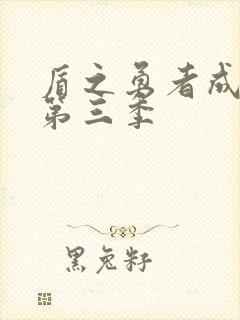 盾之勇者成
第三季
黑兔籽